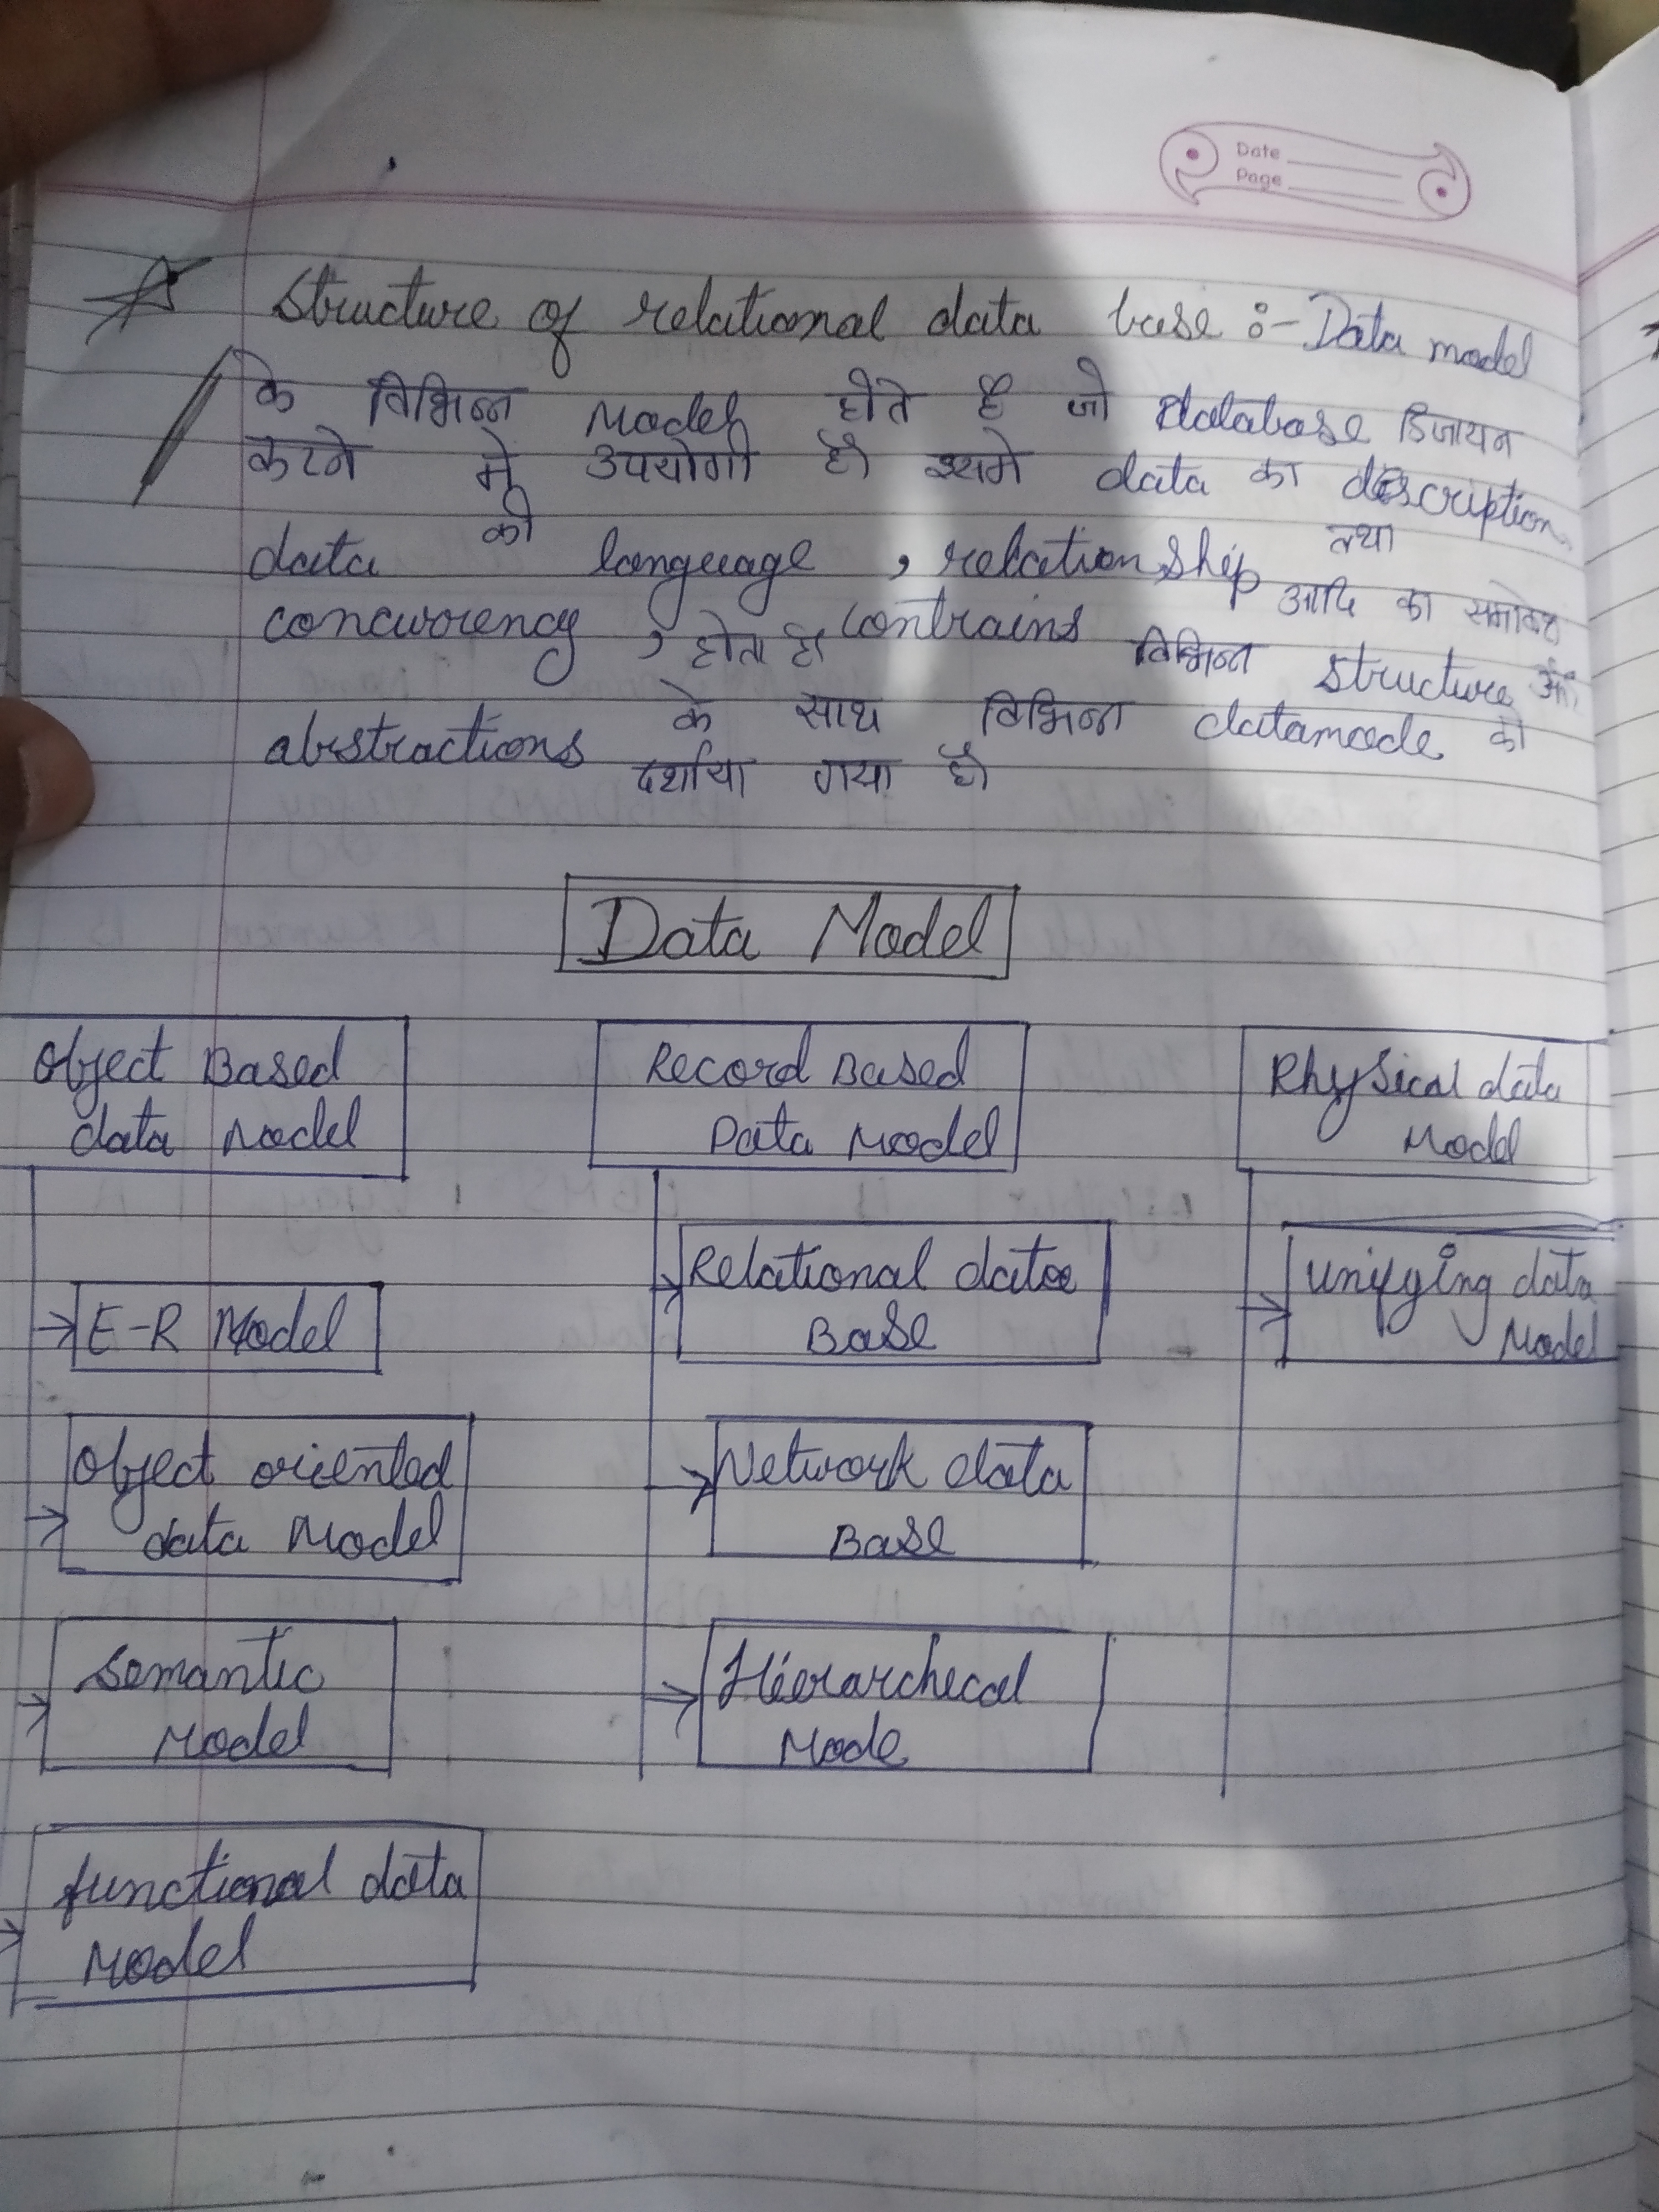 Date
Page
Structure of relational data base :- Data model
के विभिन्न Model होते है जो database डिजायन
करने मे उपयोगी है। इसमे data का description
data की language , relation ship तथा
concurrency , contrains आदि का समावेश
होता है। विभिन्न structure और
abstractions के साथ विभिन्न datamode को
दर्शाया गया है।
Data Model
Object Based
data Model
Record Based
Data Model
Physical data
Model
E-R Model
Relational data
Base
Unifying data
Model
Object oriented
data Model
Network data
Base
Semantic
Model
Hierarchecal
Mode
functional data
Model